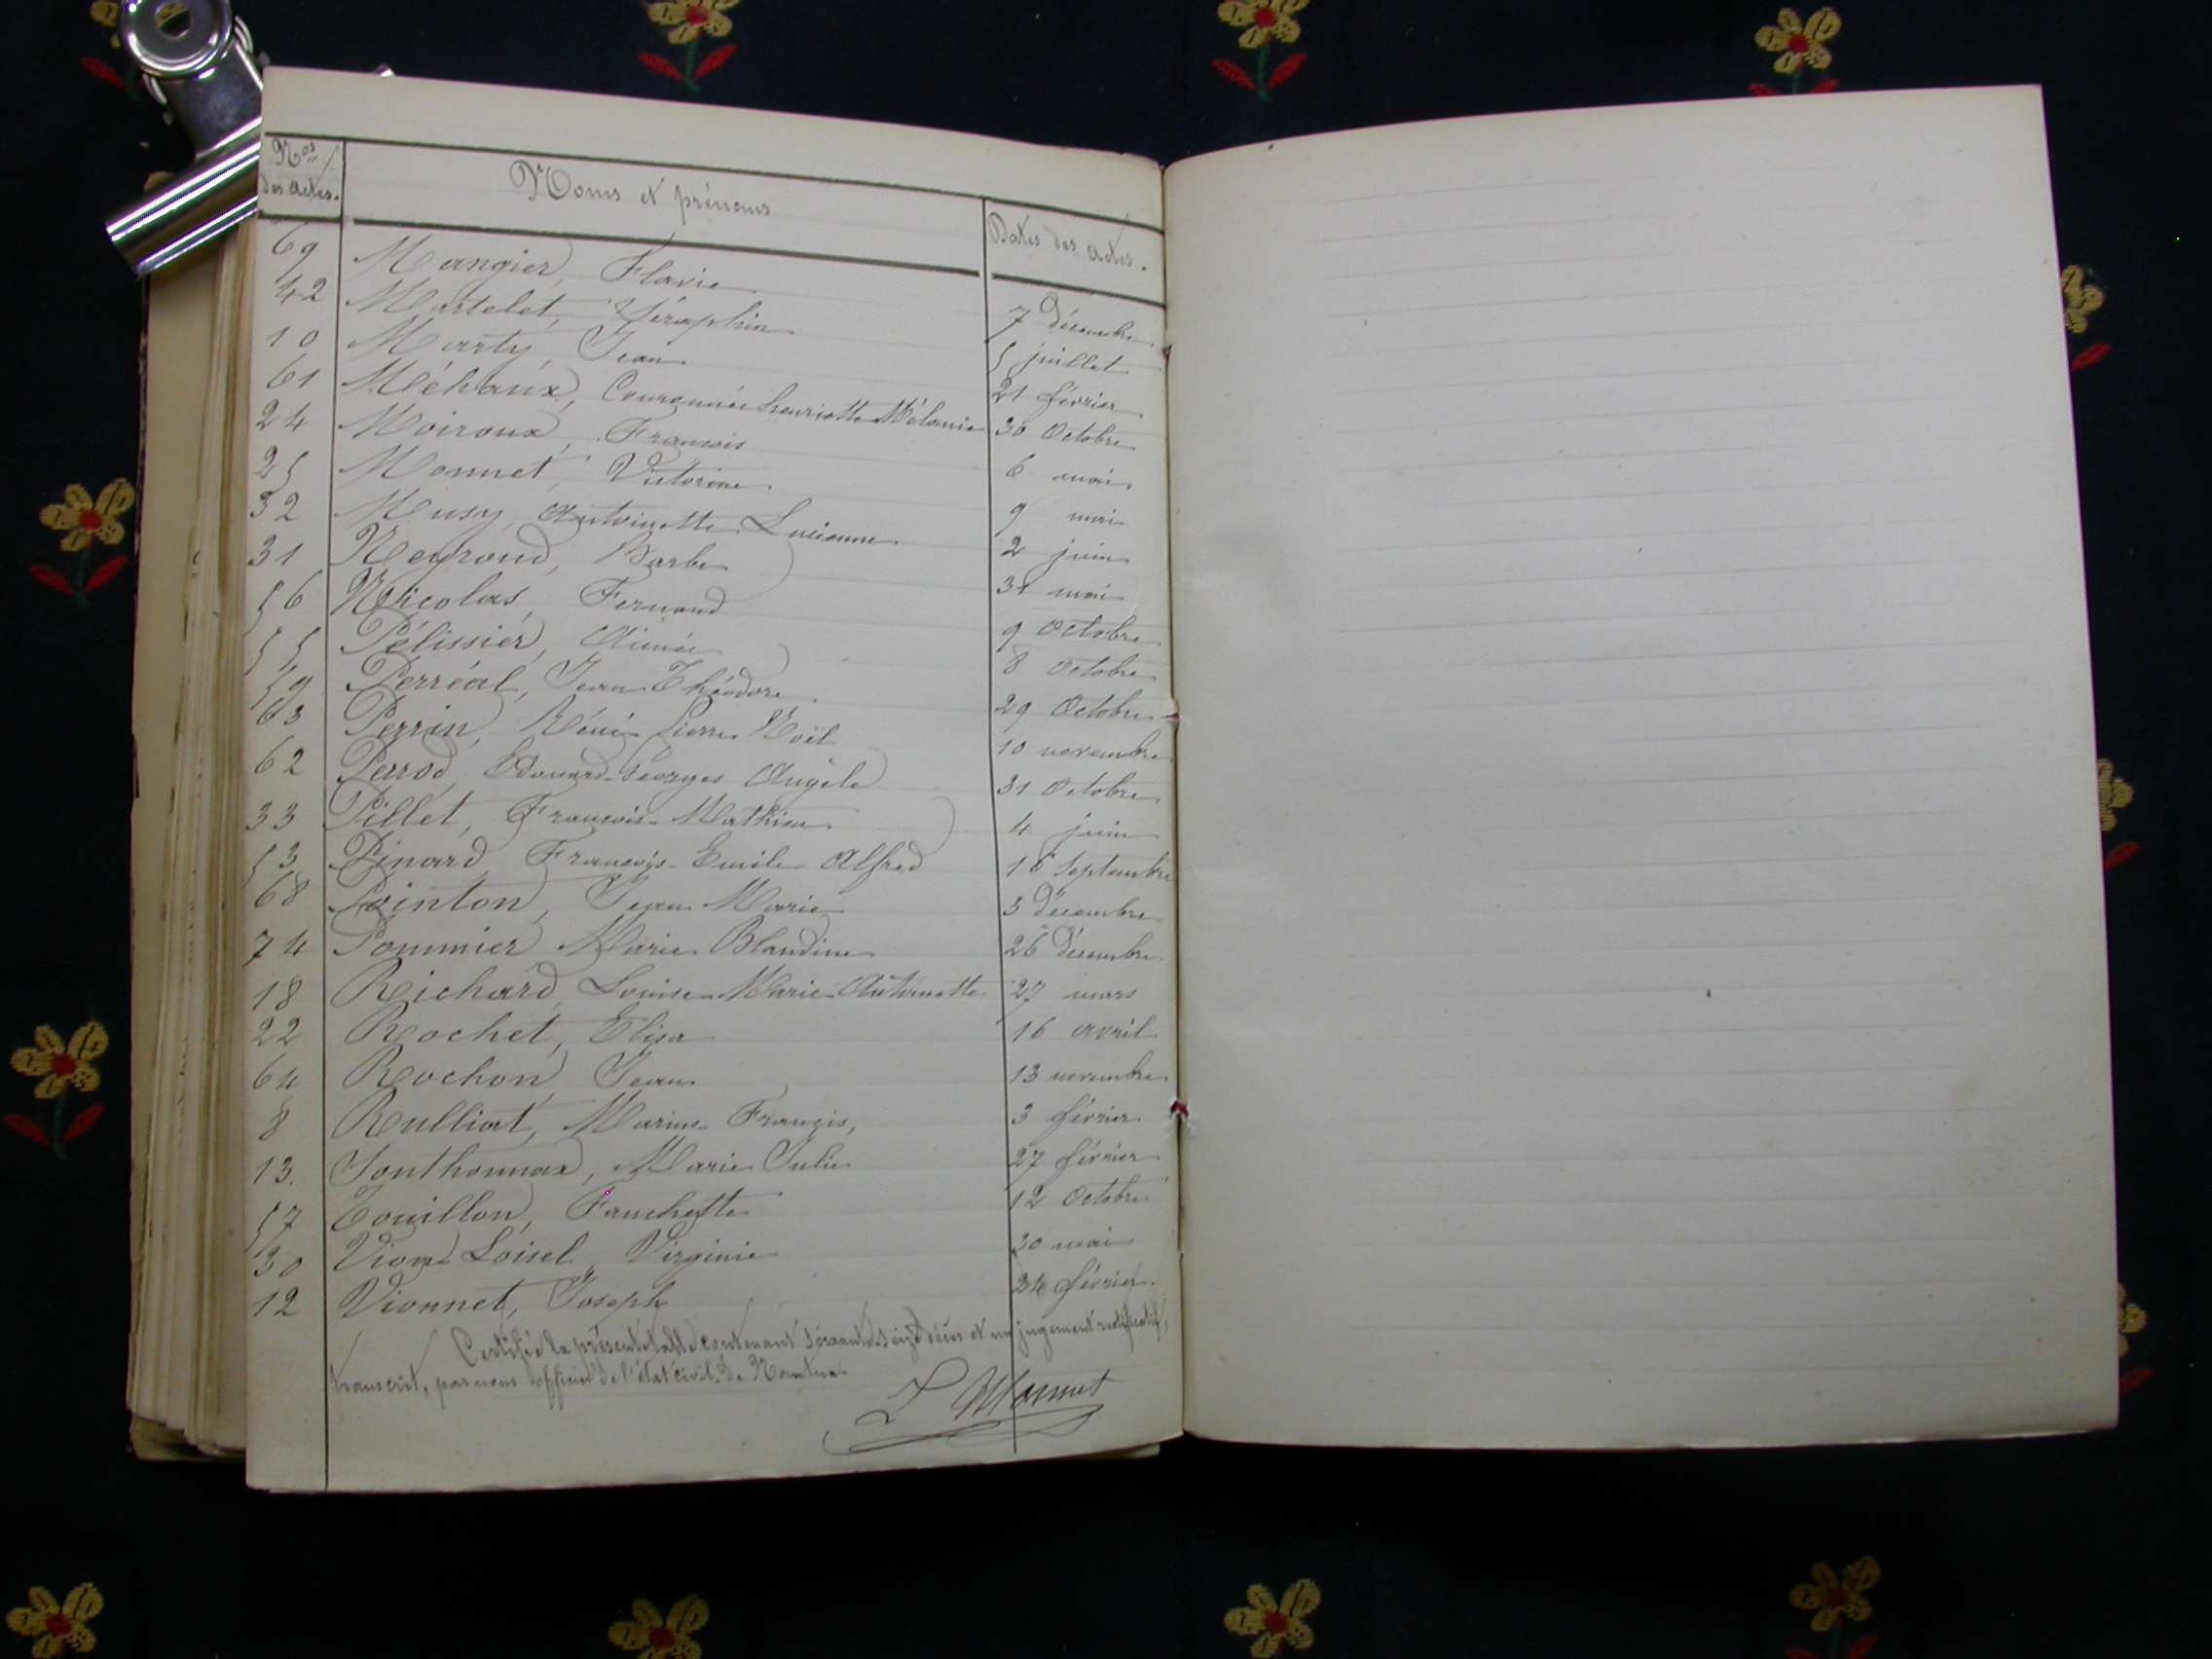 Nos des actes. Noms et prénoms Dates des actes.
69 Mangier, Flavie 7 décembre
42 Martelet, Séraphin 5 juillet
10 Marty, Jean 21 février
61 Méhaux, Couronnée henriette Mélanie 30 Octobre
24 Moiroux, François 6 mai
25 Monnet, Victorine 9 mai
32 Musy, Antoinette Lucienne 2 juin
31 Neyroud, Barbe 31 mai
56 Nicolas, Fernand 9 Octobre
55 Pélissier, Aimée 8 Octobre
59 Perréal, Jean Théodore 29 Octobre
63 Perrin, Réné Pierre Noël 10 novembre
62 Perrod, Edouard-Georges Angèle 31 Octobre
33 Pillet, François-Mathieu 4 juin
53 Pinard, François-Emile-Alfred 16 Septembre
68 Pointon, Jean Marie 3 décembre
74 Pommier, Marie Blandine 26 décembre
18 Richard, Louise-Marie-Antoinette 27 mars
22 Rochet, Elisa 16 avril
64 Rochon, Jean 13 novembre
8 Rulliat, Marius-François, 3 février
13. Sonthonnax, Marie Julie 27 février
57 Touillon, Fanchette 12 Octobre
30 Vion-Loisel, Virginie 20 mai
12 Vionnet, Joseph 24 février
Certifié la présente table contenant soixante seize décès et un jugement rectificatif,
transcrit, par nous officier de l'état civil de Nantua
Monnet